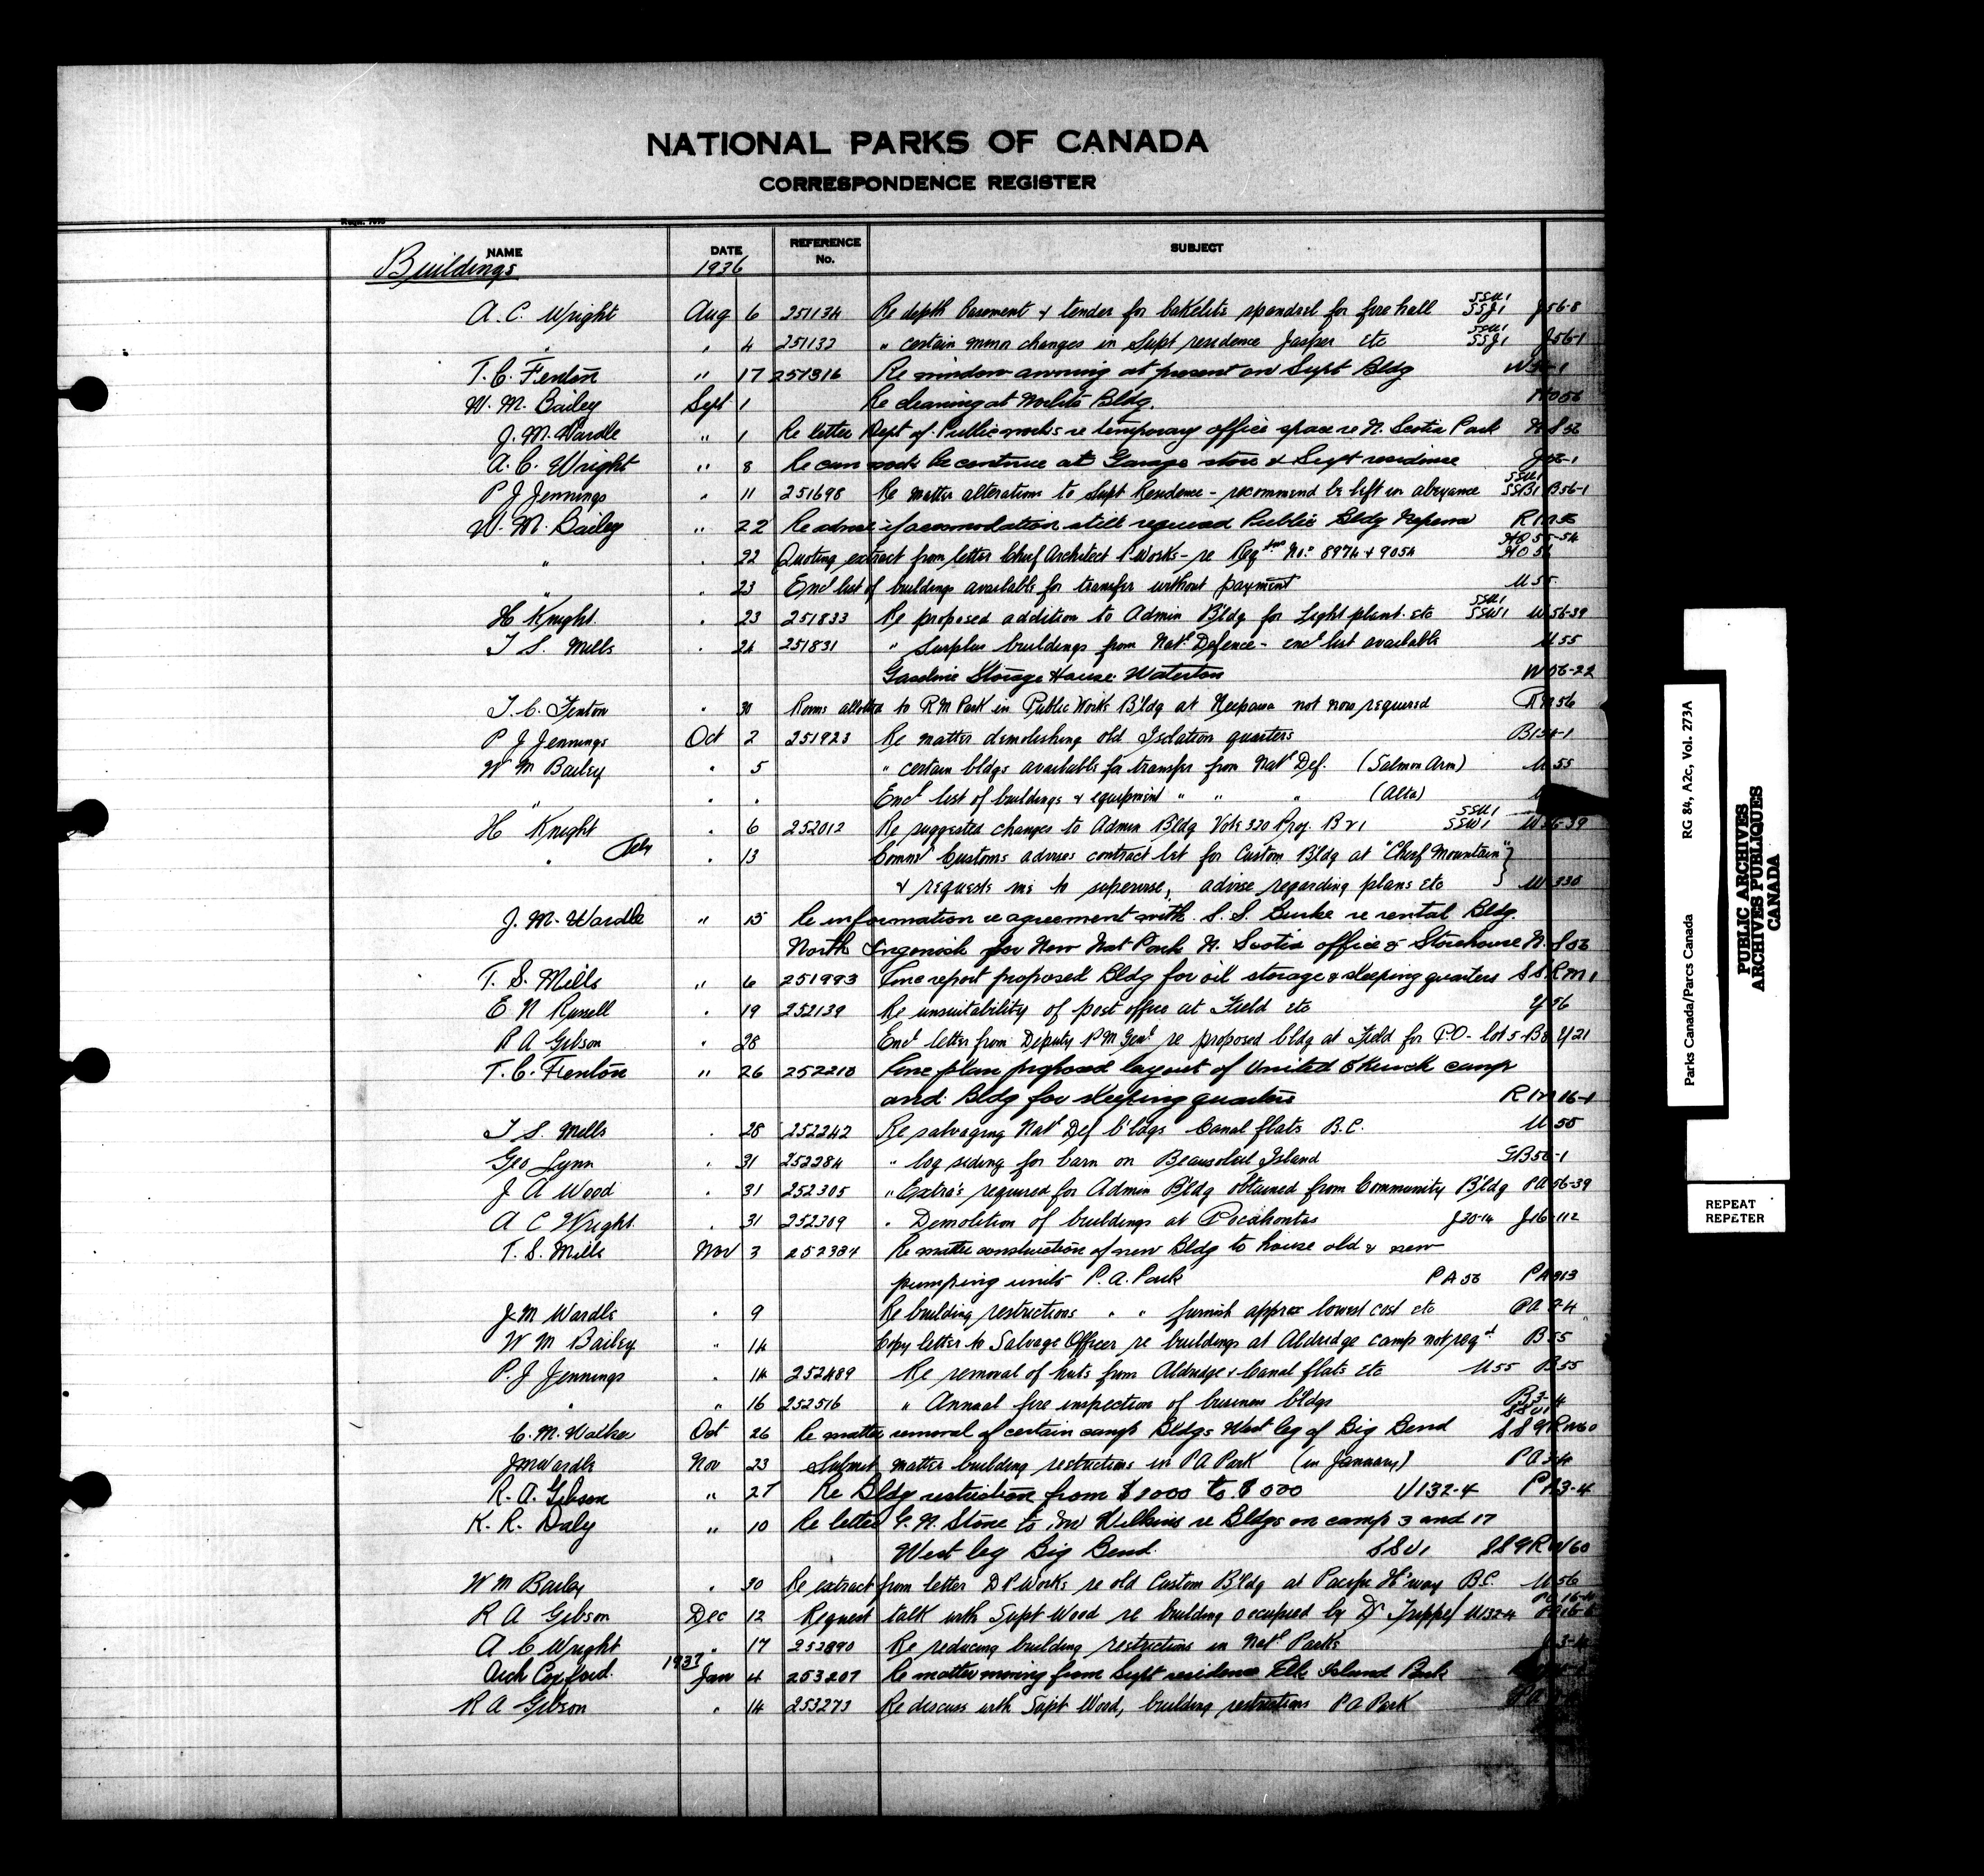 NATIONAL PARKS OF CANADA
CORRESPONDENCE REGISTER
NAME DATE REFERENCE No. SUBJECT
Buildings 1936
A. C. Wright Aug 6 251134 Re depth basement & tender for bakelite spandrel for fire hall SSU1 SSJ1 J56-8
" " 4 251132 " certain minor changes in Supt residence Jasper etc SSU1 SSJ1 J56-1
T. C. Fenton " 17 251316 Re window awning at present on Supt Bldg
W. M. Bailey Sept 1 Re cleaning at Norlite Bldg. HO56
J. M. Wardle " 1 Re letter Dept of Public works re temporary office space re N. Scotia Park N S 56
A. C. Wright " 8 Re can work be continue at Garage store & Supt residence J56-1
P J Jennings " 11 251698 Re matter alterations to Supt Residence - recommend be left in abeyance SSU1 SSB1 B56-1
W. M. Bailey " 22 Re advise if accomodation still required Public Bldg Neepawa R M 56
" " 22 Quoting extract from letter Chief Architect P Works - re Reqtns Nos 8974 & 9054 HO 55-54 HO 56
" " 23 Encl list of buildings available for transfer without payment U 55
H Knight " 23 251833 Re proposed addition to Admin B'ldg for Light plant etc SSU1 SSW1 W56-39
T S. Mills " 24 251831 " Surplus buildings from Natl Defence - encl list available U 55
Gasoline Storage House Waterton W56-22
T. C. Fenton " 30 Rooms allotted to RM Park in Public Works B'ldg at Neepawa not now required RM 56
P J Jennings Oct 2 251923 Re matter demolishing old Isolation quarters
W M Bailey " 5 " certain bldgs available for transfer from Natl Def. (Salmon Arm) U 55
" " " Encl list of buildings & equipment " " " (Alta)
H Knight " 6 252012 Re suggested changes to Admin Bldg Vote 320 Proj. B r 1 SSU1 SSW1 W56-39
" " 13 Commr Customs advises contract let for Custom B'ldg at "Chief Mountain"
& requests me to supervise, advise regarding plans etc W 330
J. M. Wardle " 15 Re information re agreement with S. S. Burke re rental Bldg.
North Ingonish for New Nat Park N. Scotia office & Storehouse N. S 56
T. S. Mills " 6 251993 Enc report proposed Bldg for oil storage & sleeping quarters S S R M 1
E N Russell " 19 252139 Re unsuitability of post office at Field etc Y 56
R A Gibson " 28 Encl letter from Deputy P M Genl re proposed bldg at Field for P.O. - lot 5 - B8 Y 21
T. C. Fenton " 26 252210 Enc plan proposed layout of United Church camp
and Bldg for sleeping quarters R M 16-1
T S. Mills " 28 252242 Re salvaging Natl Def b'ldgs Canal flats B.C. U 55
Geo Lynn " 31 252284 " log siding for barn on Beausoleil Island GB 56-1
J A Wood " 31 252305 " Extra's required for Admin B'ldg obtained from Community B'ldg PA 56-39
A C Wright " 31 252309 " Demolition of buildings at Pocahontas J30-14 J16-112
T. S. Mills Nov 3 252384 Re matter construction of new Bldg to house old & new
pumping units P. A. Park P A 56 P A 313
J M Wardle " 9 Re building restrictions " " furnish approx lowest cost etc PA 3-4
W M Bailey " 14 Copy letter to Salvage Officer re buildings at Aldridge camp not reqd B 55
P. J Jennings " 14 252489 Re removal of huts from Aldridge & Canal flats etc U 55 B 55
" " 16 252516 " Annual fire inspection of business b'ldgs B 3-4
C. M. Walker Oct 26 Re matter removal of certain camp Bldgs West leg of Big Bend SSU1 S S 9 R W 60
J M Wardle Nov 23 Submit matter building restrictions in PA Park (in January) PA 3-4
R. A. Gibson " 27 Re Bldg restriction from $1000 to $500 U132-4 PA 3-4
K. R. Daly " 10 Re letter G. N. Stone to Mr Wilkins re Bldgs on camp 3 and 17
West leg Big Bend. SSU1 SS9RW60
W M Bailey " 30 Re extract from letter D P Works re old Custom B'ldg at Pacific H'way B.C. U 56
R A Gibson Dec 12 Request talk with Supt Wood re building occupied by Dr Tripp U132-4
A C Wright " 17 252890 Re reducing building restrictions in Natl Parks J 3-4
1937
Arch Coxford. Jan 4 253207 Re matter moving from Supt residence Elk Island Park
R A Gibson " 14 253273 Re discuss with Supt Wood, building restrictions P A Park
Parks Canada/Parcs Canada RG 84, A2c, Vol. 273A
PUBLIC ARCHIVES
ARCHIVES PUBLIQUES
CANADA
REPEAT
REPETER